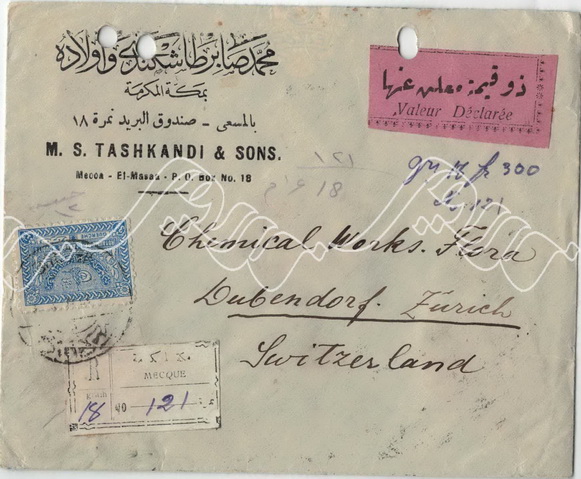 محمد صابر طاشكندي واولاده
بمكة المكرمة
بالمسعى - صندوق البريد نمرة ١٨
M. S. TASHKANDI & SONS.
Mecca - El-Masaa - P. O. Box No. 18
ذو قيمة معلن عنها
Valeur Déclarée
300
121
١٢١
Chemical Works. Flora
Dubendorf. Zürich
Switzerland
R
MECQUE
18 NO 121